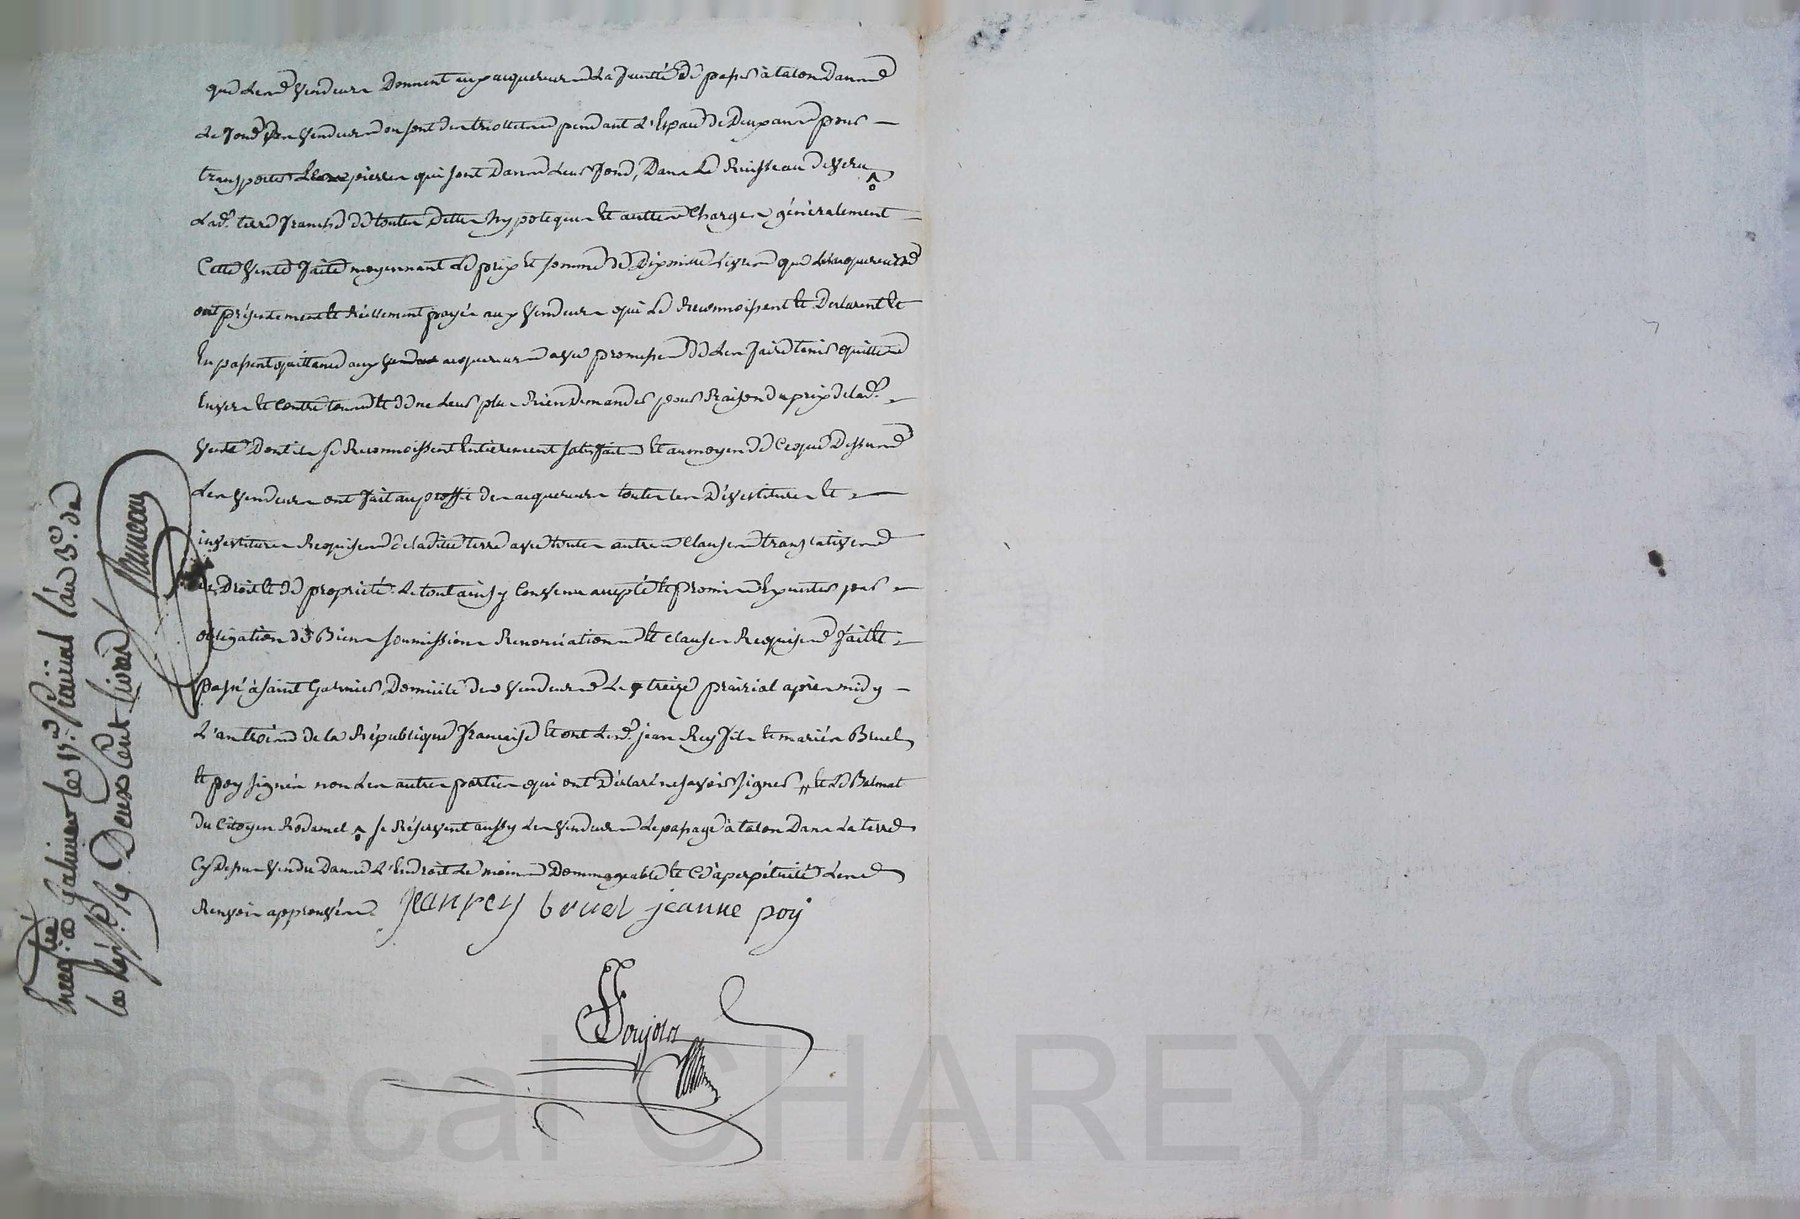 que lesd. vendeurs donnent aux acquereurs la faculté de passer à talon dans
le fond des vendeurs ou sont des trollieres pendant l'espace de deux ans pour
transporter les pierres qui sont dans leur fond, dans le Ruisseau de
lad. terre franche de toutes dettes hypoteques et autres charges généralement
Cette vente faite moyennant le prix et somme de dix mille livres que les acquereurs
ont présentement et réellement payés aux vendeurs qui le Reconnoissent et Declarent et
En passent quittance aux acquereurs avec promesse de les faire tenir quittes
Envers et contre tous et de ne leur plus Rien Demander pour Raison du prix de lad.
vente Dont ils se Reconnoissent Entierement satisfaits Et au moyen de Ce que Dessus
Les vendeurs ont fait au proffit des acquereurs toutes les Dévestitures et
investitures Requises de ladite terre avec toutes autres clauses translatives
de Droit et de propriété. Le tout ainsy Convenu accepté et promis Executer par
obligation de Biens soumissions Renonciations et clauses Requises fait et
passé à Saint Galmier Domicile des vendeurs Le treize prairial après midy
L'an trois de la République française Et ont lesd. jean Rey fils et mariés Bruel
et poy signés non les autres parties qui ont Déclaré ne savoir signer et le
du Citoyen Rodamel se Réservent aussy les vendeurs le passage à talon Dans la terre
Cy Dessus vendu Dans L'Endroit le moins Dommageable et Ce à perpétuité
Renvoir approuvés
jean rey bruel jeanne poy
Enreg. à Galmier le 15 Prairial l'an 3 de
la Rép. Deux Cent livres